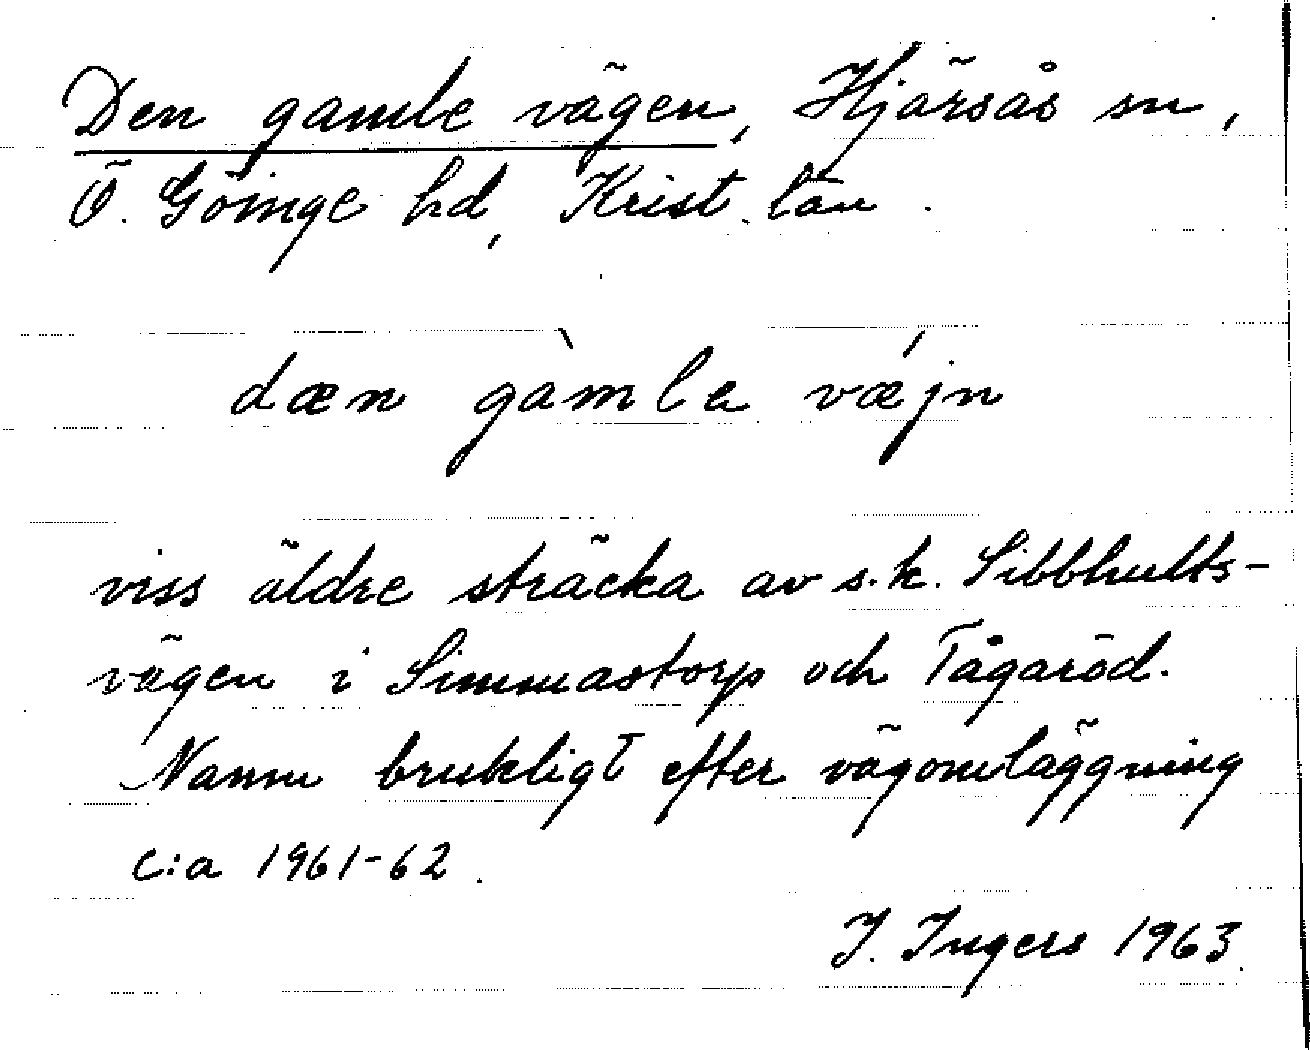 Den gamle vägen, Hjärsås sn,
Ö. Göinge hd, Krist. län.
dæn gàmla vǽjn
viss äldre sträcka av s.k. Sibbhults-
vägen i Simmastorp och Tågaröd.
Namn brukligt efter vägomläggning
c:a 1961-62.
I. Ingers 1963.